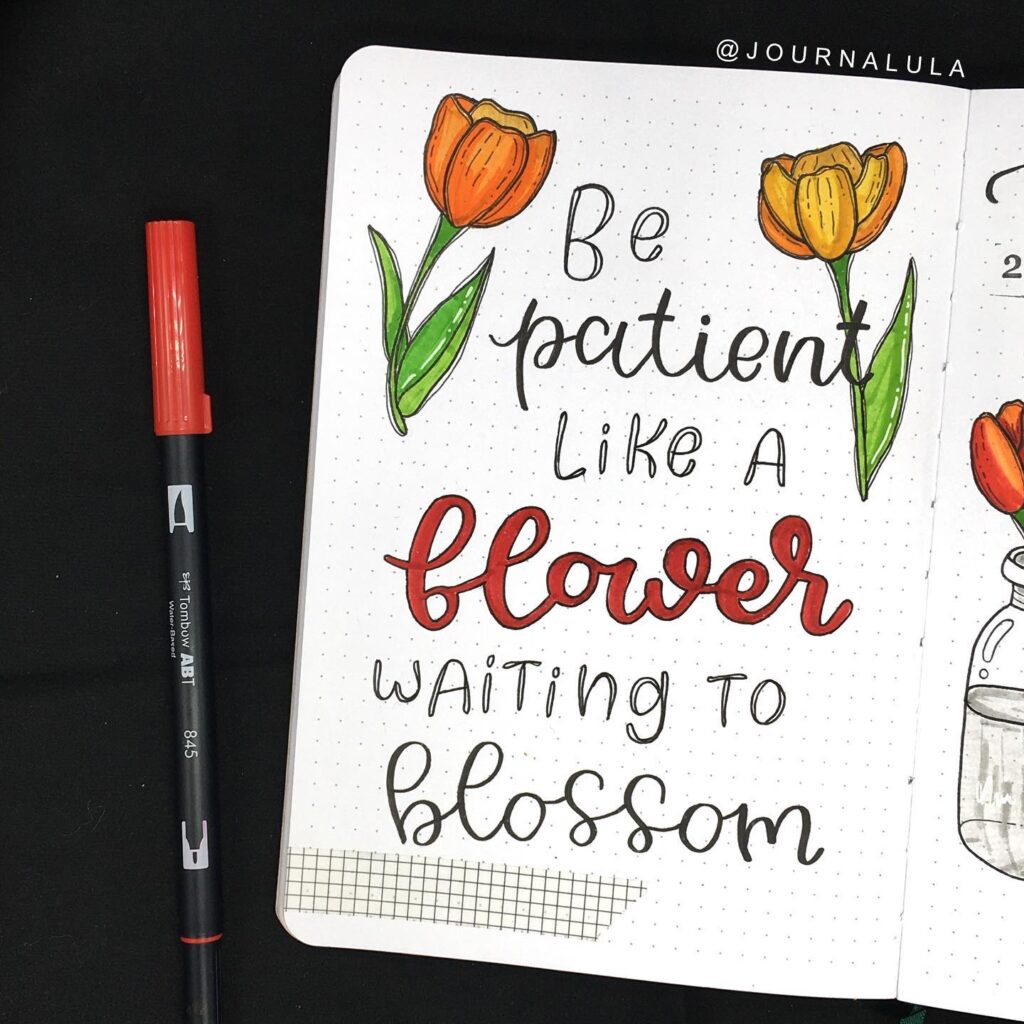 @JOURNALULA
Be
patient
Like A
flower
WAiTing TO
blossom
Tombow ABT
Water-Based
845
2